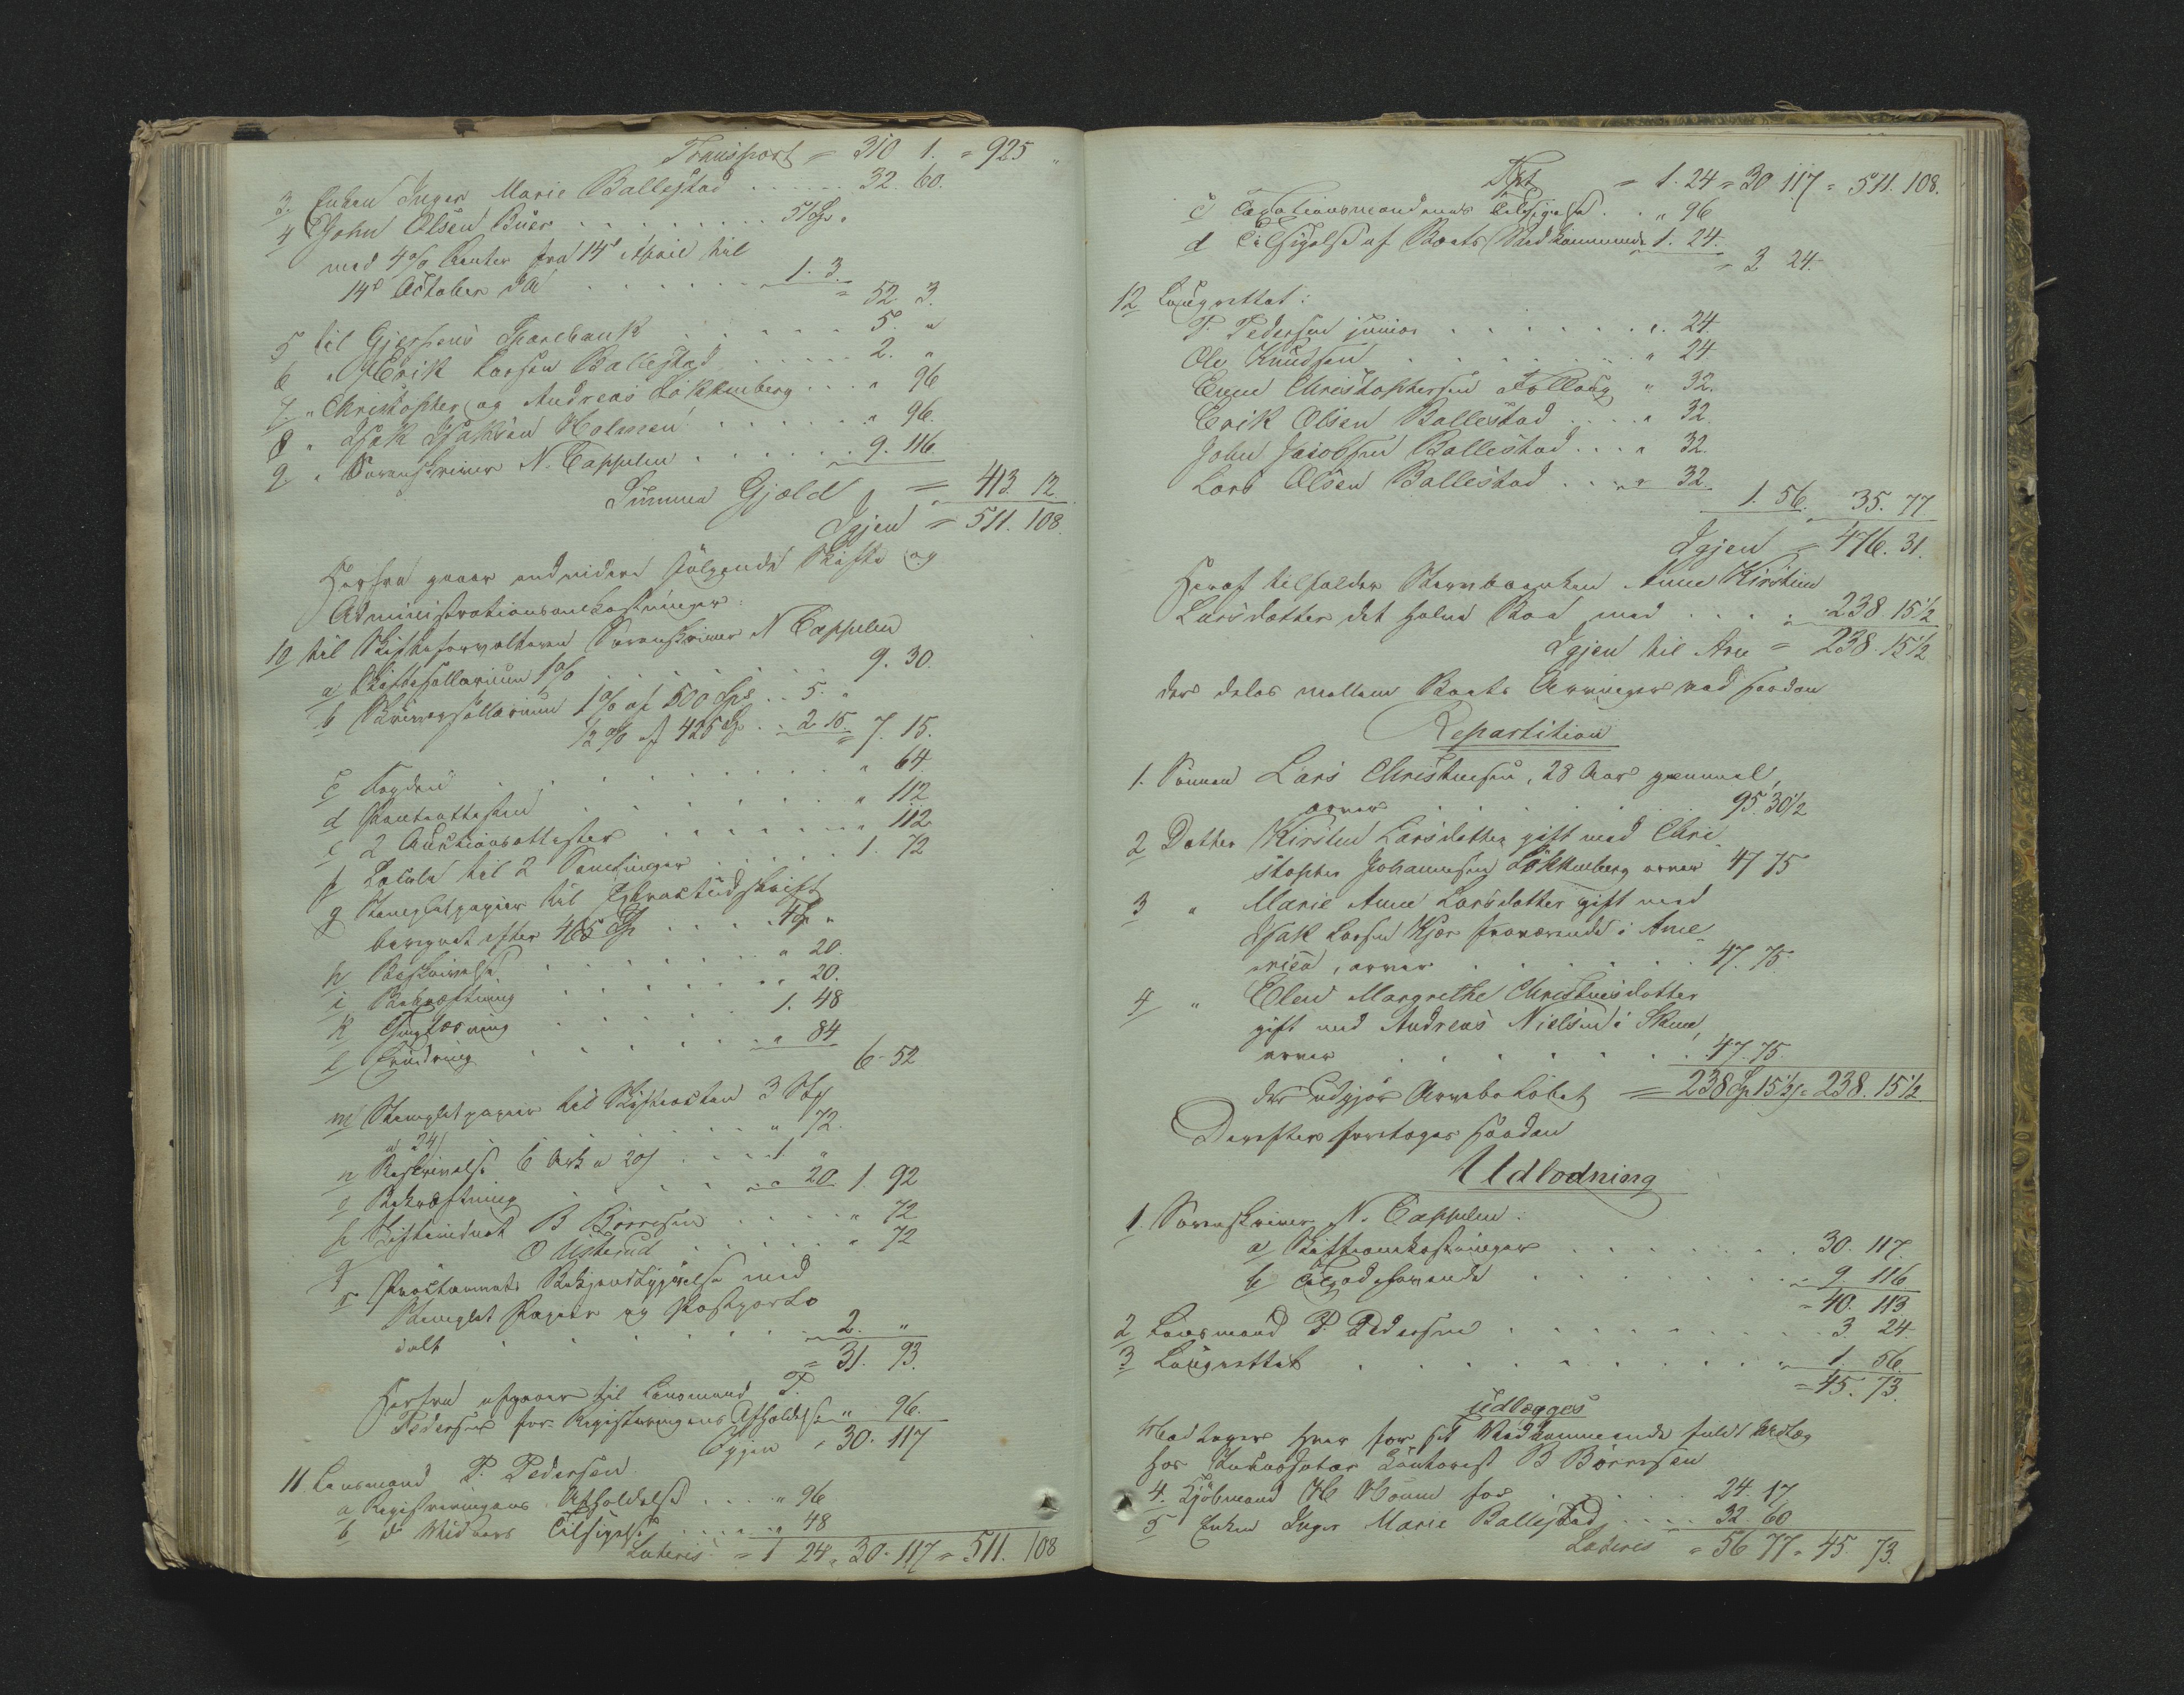 Transport = 310 1. = 925 "
3. Enken Inger Marie Ballestad . . . . . 32. 60.
4 John Olsen Buer . . . . . . . 51 Sp "
med 4 % Renter fra 14de April til
14de October d. A. . . . . . . 1. 3.
= 52 3.
5 til Gjerpens Sparebank . . . . . . 5. "
6 " Erik Larsen Ballestad . . . . . 2. "
7. " Christopher og Andreas Løkkenberg . . . " 96
8 " Isak Isaksen Holmen . . . . . . " 96.
9 " Sorenskriver N. Cappelen . . . . . . 9. 116
Summa Gjæld = 413. 12
Igjen = 511. 108
Herfra gaaer endvidere følgende Skifte og
Administrationsomkostninger:
10 til Skifteforvalteren Sorenskriver N Cappelen
a Skiftesallarium 1 % . . . . . . 9. 30.
b Skriversallarium 1 % af 500 Spd . . 5. "
½ % af 425 Sp . . 2 15 = 7. 15.
c Kopien . . . . . . . . " 64
d Panteattesten . . . . . . . " 112
e 2 Auctionsattester . . . . . . " 112
f Locale til 2 Samlinger . . . . . 1. 72
g Stemplet papir til Extractudskrift
beregnet efter 465 Sp . . . . 4 Sp "
h Beskrivelse . . . . . . " 20.
i Bekræftning . . . . . . " 20.
k Thinglæsning . . . . . 1. 48
l Ændring . . . . . . " 84
6 - 52
m Stemplet papir til Skifteacten 3 Stk
a 24 s . . . . . . " 72.
n Beskrivelse 6 Ark a 20 s . . . . 1 "
o Bekræftning . . . . . . " 20 1. 92
p Skiftevidnet B Børresen . . . . " 72
q O Usterud . . . . . " 72
r Proclamats Bekjendtgjørelse med
Stemplet Papir og Postporto
ialt . . . . . . . . 2. "
= 31. 93.
Herfra afgaaer til Lensmand P.
Pedersen for Registeringens Afholdelse " 96.
Igjen = 30. 117
11 Lensmand P. Pedersen
a Registreringens Afholdelse . . . " 96
b d Vidners Tilsigelse . . . . " 48
Lateris = 1 24 = 30. 117 = 511. 108
Tspt = 1. 24 = 30 117 = 511. 108.
c Taxationsmændenes Tilsigelse . . " 96
d Tilsigelse af Boets Vedkommende 1. 24.
= 3 24.
12 Laugrettet:
P. Pedersen junior . . . . . . " 24.
Ole Knudsen . . . . . . . " 24
Even Christophersen " 32.
Erik Olsen Ballestad . . . . " 32
John Jacobsen Ballestad . . . " 32.
Lars Olsen Ballestad . . . " 32
1. 56. 35. 77
Igjen = 476. 31.
Heraf tilfalder Stervboenken Anne Kirstine
Larsdatter det halve Boe med . . . . 238. 15½
Igjen til Arv = 238. 15½
der deles mellem Boets Arvinger ved saadan
Repartition
1. Sønnen Lars Christensen, 28 Aar gammel,
arver . . . . . . . 95. 30½
2 Datter Kirsten Larsdatter gift med Chri-
stopher Johannesen Løkkenberg arver 47 75
3 " Marie Anne Larsdatter gift med
Isak Larsen Kjær fraværende i Ame-
rica, arver . . . . . . 47. 75.
4 " Elen Margrethe Christensdatter
gift med Andreas Nielsen i Skien,
arver . . . . . . . . 47. 75.
der udgjør Arvebeløbet = 238 Sp 15½ s = 238. 15½
Derefter foretages saadan
Udlodning
1 Sorenskriver N. Cappelen:
a Skifteomkostninger . . . . . . 30. 117.
b Tilgodehavende . . . . . . . 9. 116
= 40. 113
2 Lensmand P. Pedersen . . . . . . . 3. 24.
3 Laugrettet . . . . . . . . . 1. 56.
= 45. 73.
Udlægges
hver for sit Vedkommende fuldt Udlæg
hos Incassator Contorist B Børresen
4. Kjøbmand for . . . . . . 24. 17
5 Enken Inger Marie Ballestad . . . . 32 60
Lateris = 56 77 = 45 73.